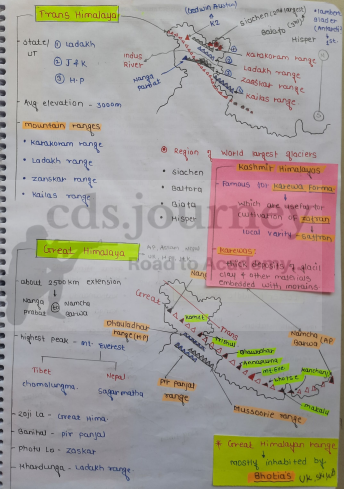 Trans Himalaya
(Godwin Austin)
K2
Siachen (2nd largest)
Baltoro
Hispar
state/
UT
① Ladakh
② J & K
③ H.P
Indus
River
Nanga
Parbat
Karakoram range
Ladakh range
Zanskar range
Kailas range
Avg elevation - 3000m
mountain ranges
• Karakoram range
• Ladakh range
• Zanskar range
• Kailas range
Region of World largest glaciers
• siachen
• Baltora
• Biafa
• Hisper
Kashmir Himalayas
- Famous for Karewa forma-
which are useful for
cultivation of Zafran
local variety
Saffron
Karewas:
clay & other materials
embedded with moraines.
cds.journey
Road to Academy
Great Himalaya
- about 2500 km extension
Nanga
Parbat
Namcha
Barwa
Dhauladhar
range (HP)
- highest peak - Mt. Everest
Tibet
Nepal
chomolungma.
Sagarmatha
Great
Trans
Kamet
Trishul
Dhaulagiri
Annapurna
Mt. Eve.
Lhotse
Kanchenj
Makalu
Namcha (AP
Barwa
Pir Panjal
range
Mussoorie range
- Zoji La - Great Hima.
- Banihal - Pir panjal
- Photu La - Zaskar
- Khardunga - Ladakh range
* Great Himalayan range
mostly inhabited by
Bhotias